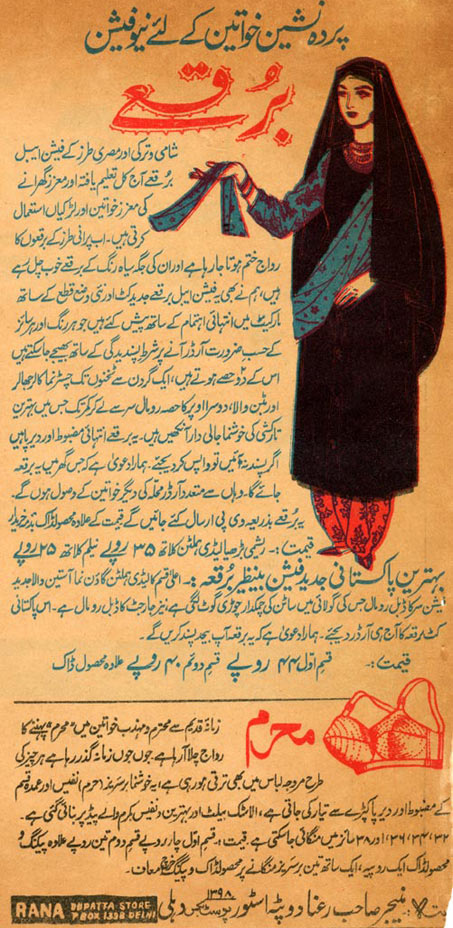 پردہ نشین خواتین کے لئے نیو فیشن
بُرقعے
شامی و ترکی اور مصری طرز کے فیشن ایبل
برقعے آج کل تعلیم یافتہ اور معزز گھرانے
کی معزز خواتین اور لڑکیاں استعمال
کرتی ہیں۔ اب پرانی طرز کے برقعوں کا
رواج ختم ہوتا جا رہا ہے اور ان کی جگہ سیاہ رنگ کے برقعے خوب چل رہے
ہیں، ہم نے بھی یہ فیشن ایبل برقعے جدید کٹ اور نئی وضع قطع کے ساتھ
مارکیٹ میں انتہائی اہتمام کے ساتھ پیش کئے ہیں جو ہر رنگ اور ہر سائز
کے حسب ضرورت آرڈر آنے پر شرطِ پسندیدگی کے ساتھ بھیجے جا سکتے ہیں
اس کے دو حصے ہوتے ہیں، ایک گردن سے ٹخنوں تک چسٹر نما کالر جھالر
اور بٹن والا، دوسرا اوپر کا حصہ رومال سر سے لے کر کمر تک جس میں بہترین
تارکشی کی خوشنما جالی دار آنکھیں ہیں۔ یہ برقعے انتہائی مضبوط اور دیرپا ہیں
اگر پسند نہ آئیں تو واپس کر دیجئے۔ ہمارا دعویٰ ہے کہ جس گھر میں یہ برقعہ
جائے گا۔ وہاں سے متعدد آرڈر محلہ کی دیگر خواتین کے وصول ہوں گے۔
یہ برقعے بذریعہ وی پی ارسال کئے جائیں گے قیمت کے علاوہ محصول ڈاک بذمہ خریدار
قیمت:۔ ریشمی بڑھیا لیڈی ہملٹن کلاتھ ۳۵ روپے نیلم کلاتھ ۲۵ روپے
بہترین پاکستانی جدید فیشن بینظیر بُرقعہ:۔ اعلیٰ قسم کا لیڈی ہملٹن گاؤن نما آستین والا جدید
فیشن سر کا ڈبل رومال جس کی گولائی میں ساٹن کی چمکدار چوڑی گوٹ لگی ہے، نیز جارجٹ کا ڈبل رومال ہے۔ اس پاکستانی
کٹ برقعہ کا آج ہی آرڈر دیجئے۔ ہمارا دعویٰ ہے کہ یہ برقعہ آپ بیحد پسند کریں گے۔
قیمت:۔ قسم اول ۴۴ روپے قسم دوئم ۴۰ روپے علاوہ محصول ڈاک
محرم
زمانہ قدیم سے محترم و مہذب خواتین میں "محرم" پہننے کا
رواج چلا آ رہا ہے۔ جوں جوں زمانہ گذر رہا ہے ہر چیز کی
طرح مروجہ لباس میں بھی ترقی ہو رہی ہے، یہ خوشنما برسریز (محرم) نفیس اور عمدہ قسم
کے مضبوط اور دیرپا کپڑے سے تیار کی جاتی ہے، الاسٹک بیلٹ اور بہترین و نفیس بکرم والے پیڈ پر بنائی گئی ہے۔
۳۲، ۳۴، ۳۶، اور ۳۸ سائز میں منگائی جا سکتی ہے۔ قیمت:۔ قسم اول چار روپے قسم دوم تین روپے علاوہ پیکنگ و
محصول ڈاک ایک روپیہ، ایک ساتھ تین برسریز منگانے پر محصول ڈاک و پیکنگ خرچ معاف۔
منیجر صاحب رعنا دوپٹہ اسٹور پوسٹ بکس ۱۳۹۸ دہلی
RANA DUPATTA STORE
P BOX 1398 DELHI